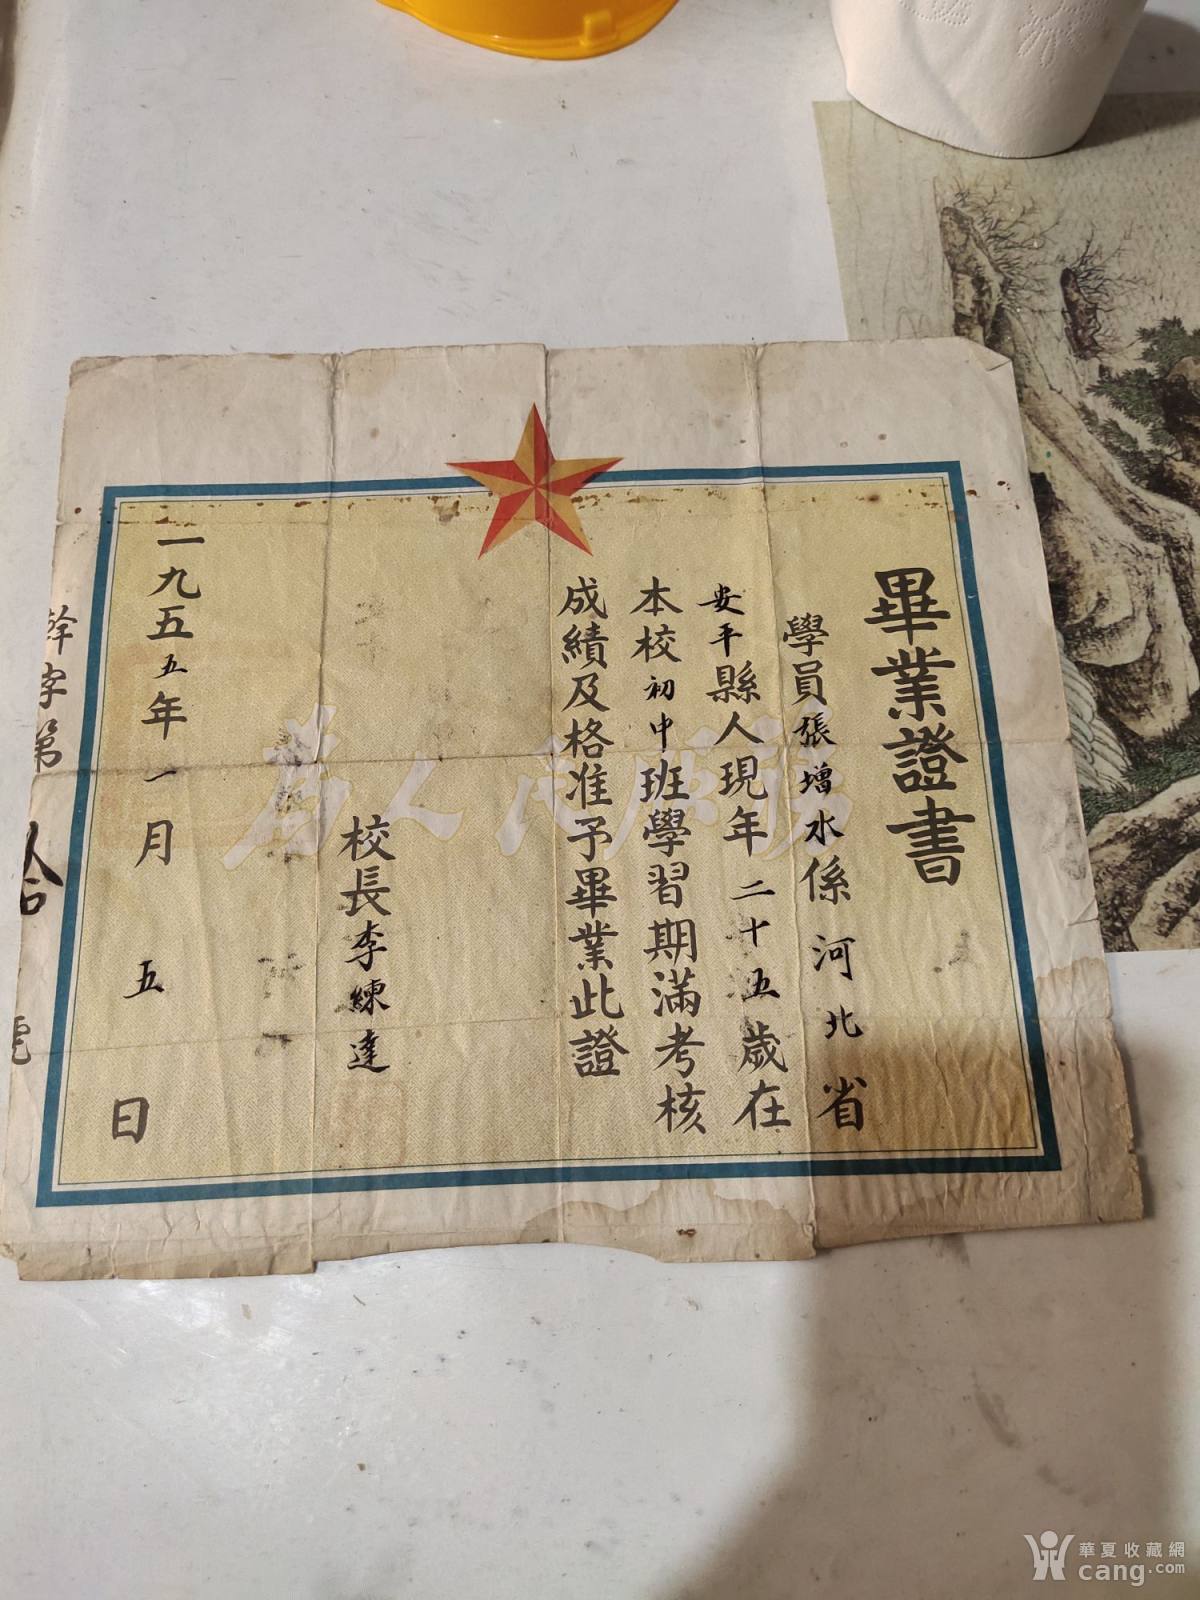 畢業證書
學員張增水係河北省
安平縣人現年二十五歲在
本校初中班學習期滿考核
成績及格准予畢業此證
校長李練達
一九五五年一月五日
幹字第拾號
為人民服務
華夏收藏網
cang.com